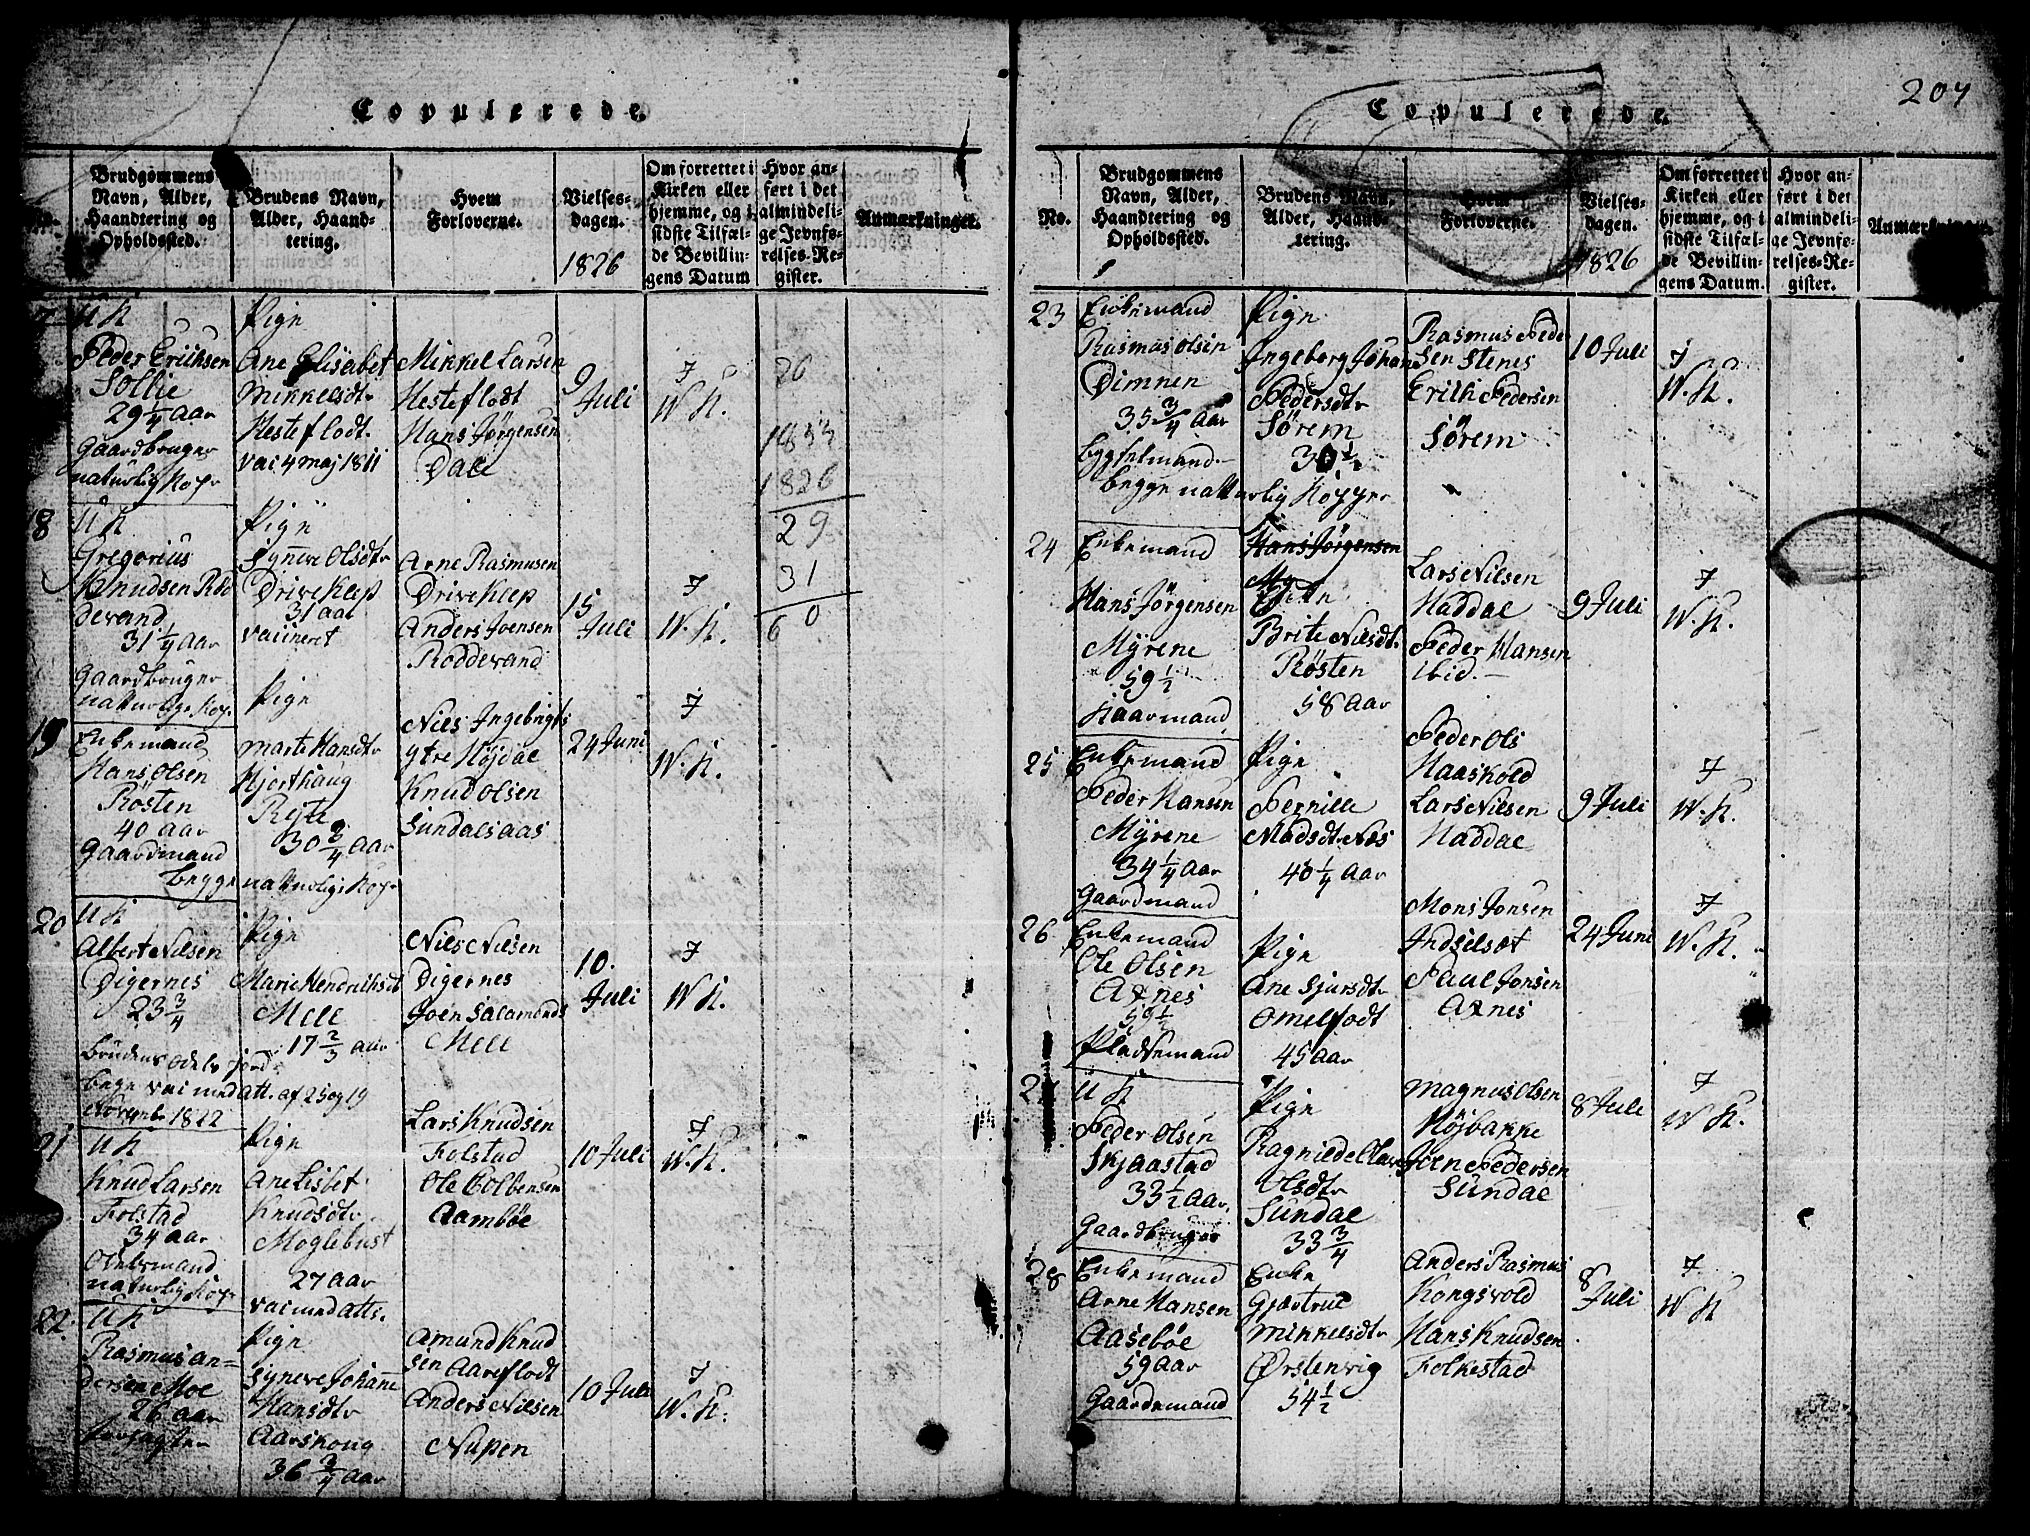 Copulerede.
Brudgommens
Navn, Alder,
Haandtering og
Opholdssted.
Brudens Navn,
Alder, Haand-
tering.
Hvem
Forloverne.
Vielses-
dagen.
1826
Om forrettet i
Kirken eller
hjemme, og i
sidste Tilfæl-
de Bevillin-
gens Datum
Hvor an-
ført i det
almindeli-
ge Jevnfø-
relses-Re-
gister.
Anmærkninger.
7
U K
Peder Erichsen
Sollie
29 1/4 Aar
Gaardbruger
naturlig Kop.
Pige
Ane Elisabet
Mikkelsdtr
Hesteflodt.
vac 4 maj 1811
Mikkel Larsen
Hesteflodt
Hans Jørgensen
Dale
9
Juli
7
W. K.
26
1855
1826
29
31
6 0
18
U K
Gregorius
Knudsen Rod
devand
31 1/4 Aar
Gaardbruger
Pige
Synneve Olsdtr
Driveklep
31 aar
vaccineret
Arne Rasmusen
Driveklep
Anders Joensen
Roddevand
15
Juli
7
W. K.
19
Enkemand
Hans Olsen
Røsten
40 aar
Gaardmand
Pige
Marte Hansdtr
Hjorthaug
Reite
30 3/4 Aar
begge naturlige Kop.
Niels Ingebrigts
Ytre Højdal
Knud Olsen
Sundalsaas
24 Juni
7
W. K.
20
U K
Albert Nilsen
Digernes
23 3/4
Pige
Marie Hendriksdt
Mele
17 2/3 aar
Niels Nilsen
Digernes
Joen Salamonds
Mele
10.
Juli
7
W K.
vac med att. af 25 og 19
Novemb. 1822
21
U K
Knud Larsen
Folstad
34 aar
naturlig Kop.
Pige
Ane Lisbet
Knudsdtr
Moglebust
27 aar
vac med atts.
Lars Knudsen
Folstad
Ole Colbensen
Aambøe
10 Juli
7
W. K.
22
U K
Rasmus an=
dersen Moe
26 aar
Pige
Synneve Johanne
Hansdtr
Aarskoug
36 3/4 Aar
Amund Knud
sen Aareflodt
Anders Nilsen
Nupen
10 Juli
7
W. K.
Copulerede.
207
No.
Brudgommens
Navn, Alder,
Haandtering og
Opholdssted.
Brudens Navn,
Alder, Haand-
tering.
Hvem
Forloverne.
Vielses-
dagen.
1826
Om forrettet i
Kirken eller
hjemme, og i
sidste Tilfæl-
de Bevillin-
gens Datum.
Hvor an-
ført i det
almindeli-
ge Jevnfø-
relses-Re-
gister.
Anmærkninger.
23
Enkemand
Rasmus Olsen
Dimnen
35 3/4 Aar
Bygselmand
Pige
Ingeborg Johan
Pedersdtr
Sørem
30 1/2
begge naturlig Kopper
Rasmus Peder
sen Stenes
Erich Pedersen
Sørem
10 Juli
7
W. K.
24
Enkemand
Hans Jørgensen
Myrene
59 1/2
Kaarmand
Hans Jørgensen
Brite Nilsdtr
Røsten
58 Aar
Lars Nilsen
Naddal
Peder Hansen
ibid.
9 Juli
7
W. K.
25
Enkemand
Peder Hansen
Myrene
34 1/4 Aar
Gaardmand
Pige
Pernille
Madsdtr Nes
40 1/4 Aar
Peder Ols
Haaskold
Lars Nilsen
Naddal
9 Juli
7
W. K.
26
Enkemand
Ole Olsen
Axnes
59 1/2
Pladsemand
Pige
Ane Sjursdtr
Omelfodt
45 aar
Mons Jonsen
Indselset
Paul Jonsen
Axnes
24 Juni
7
W. K.
27
U K
Peder Olsen
Skjaastad
33 1/2 Aar
Gaardbruger
Pige
Ragnilde
Olsdtr
Sundal
33 3/4
Magnus Olsen
Højbakke
Joen Pedersen
Sundal
8 Juli
7
W K.
28
Enkemand
Arne Hansen
Aasebøe
59 Aar
Gaardemand
Enke
Gjertrue
Mikkelsdtr
Ørstenvig
54 1/2
Anders Rasmus
Kongsvold
Hans Knudsen
Folkestad
8
Juli
7
W K